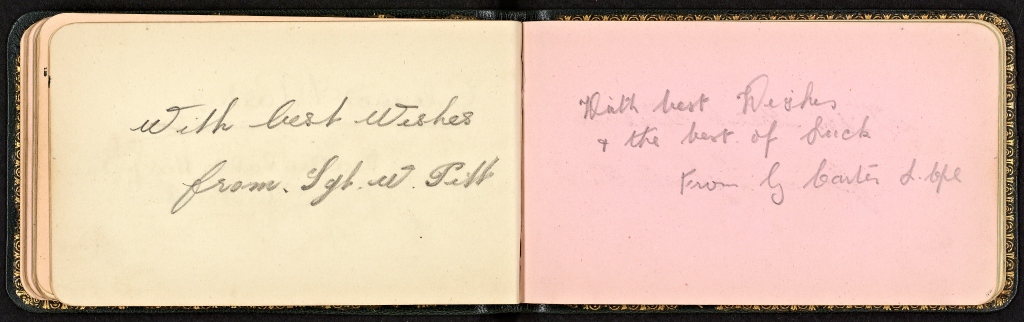 With best Wishes
from. Sgt. W. Pitt
With best Wishes
& the best of Luck
From Carter L. Cpl